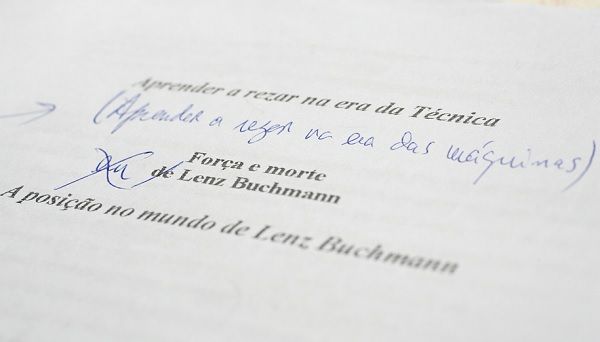 Aprender a rezar na era da Técnica
(Aprender a rezar na era das máquinas)
Força e morte
de Lenz Buchmann
A posição no mundo de Lenz Buchmann